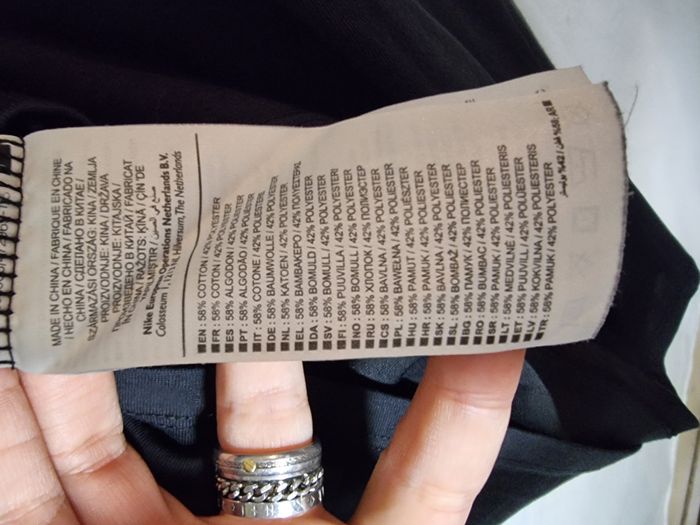 MADE IN CHINA / FABRIQUÉ EN CHINE
/ HECHO EN CHINA / FABRICADO NA
CHINA / СДЕЛАНО В КИТАЕ /
SZÁRMAZÁSI ORSZÁG: KÍNA / ZEMLJA
PROIZVODNJE: KINA / DRŽAVA
PROIZVODNJE: KITAJSKA /
В КИТАЙ / FABRICAT
CHINA / RAŽOTS: ĶĪNĀ / ÇİN DE
/ صنع في الصين
Nike European Operations Netherlands B.V.
Colosseum 1, Hilversum, The Netherlands
EN : 58% COTTON / 42% POLYESTER
FR : 58% COTON / 42% POLYESTER
ES : 58% ALGODON / 42% POLIESTER
PT : 58% ALGODÃO / 42% POLIESTER
IT : 58% COTONE / 42% POLIESTERE
DE : 58% BAUMWOLLE / 42% POLYESTER
NL : 58% KATOEN / 42% POLYESTER
EL : 58% ΒΑΜΒΑΚΕΡΟ / 42% ΠΟΛΥΕΣΤΕΡΑΣ
DA : 58% BOMULD / 42% POLYESTER
SV : 58% BOMULL / 42% POLYESTER
FI : 58% PUUVILLA / 42% POLYESTERI
NO : 58% BOMULL / 42% POLYESTER
RU : 58% ХЛОПОК / 42% ПОЛИЭСТЕР
CS : 58% BAVLNA / 42% POLYESTER
PL : 58% BAWEŁNA / 42% POLIESTER
HU : 58% PAMUT / 42% POLIÉSZTER
HR : 58% PAMUK / 42% POLIESTER
SK : 58% BAVLNA / 42% POLYESTER
SL : 58% BOMBAŽ / 42% POLIESTER
BG : 58% ПАМУК / 42% ПОЛИЕСТЕР
RO : 58% BUMBAC / 42% POLIESTER
SR : 58% PAMUK / 42% POLIESTER
LT : 58% MEDVILNĖ / 42% POLIESTERIS
ET : 58% PUUVILL / 42% POLÜESTER
LV : 58% KOKVILNA / 42% POLIESTERIS
TR : 58% PAMUK / 42% POLIESTER
AR : 58% قطن / 42% بوليستر